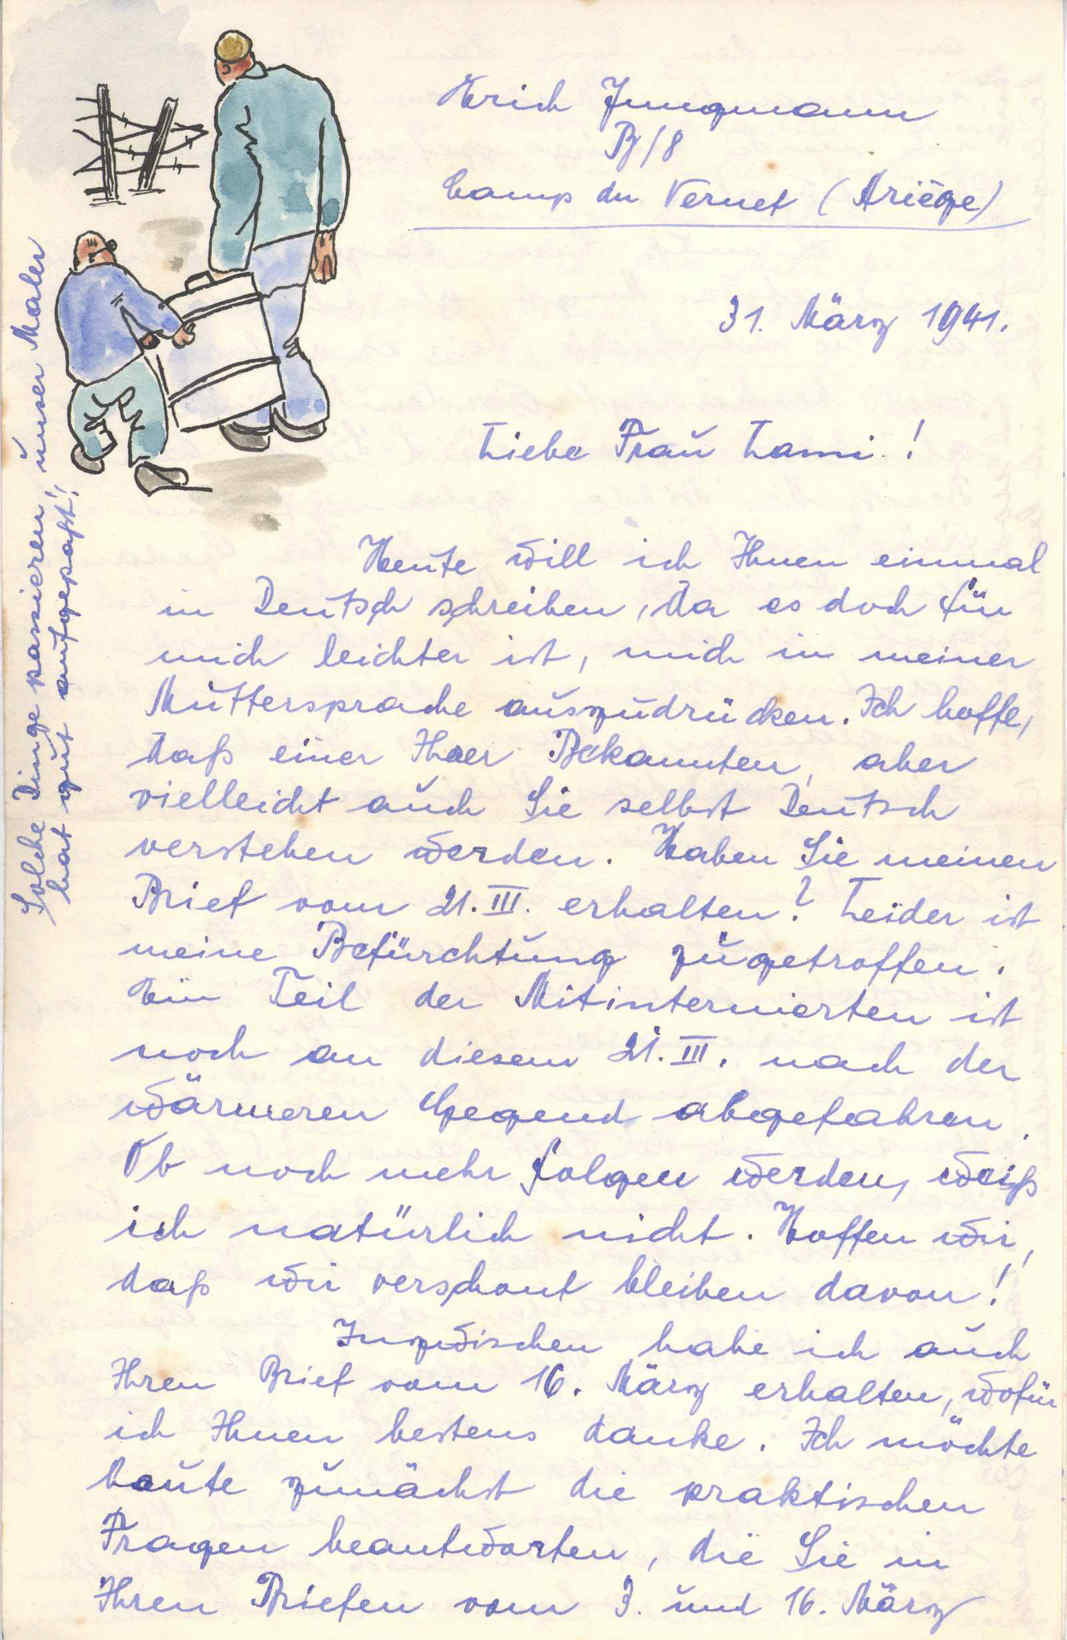 Erich Jungmann
B/8
Camp du Vernet (Ariège)
31. März 1941.
Liebe Frau Lami!
Heute will ich Ihnen einmal
in Deutsch schreiben, da es doch für
mich leichter ist, mich in meiner
Muttersprache auszudrücken. Ich hoffe,
daß einer Ihrer Bekannten, aber
vielleicht auch Sie selbst Deutsch
verstehen werden. Haben Sie meinen
Brief vom 21. III. erhalten? Leider ist
meine Befürchtung zugetroffen.
Ein Teil der Mitinternierten ist
noch an diesem 21. III. nach der
wärmeren Gegend abgefahren.
Ob noch mehr folgen werden, weiß
ich natürlich nicht. Hoffen wir,
daß wir verschont bleiben davon!
Inzwischen habe ich auch
Ihren Brief vom 16. März erhalten, wofür
ich Ihnen bestens danke. Ich möchte
heute zunächst die praktischen
Fragen beantworten, die Sie in
Ihren Briefen vom 3. und 16. März
Solche Dinge passieren, unser Maler
hat gut aufgepaßt!